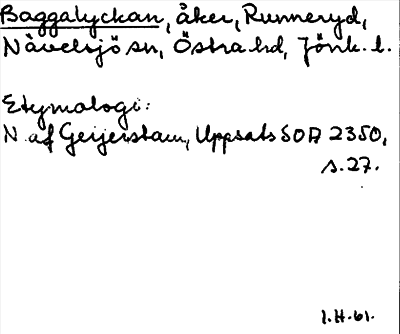 Baggalyckan, åker, Runneryd,
Nävelsjö sn, Östra hd, Jönk. l.
Etymologi:
N. af Geijerstam, Uppsats SOA 2350,
s. 27.
I.H.-61.